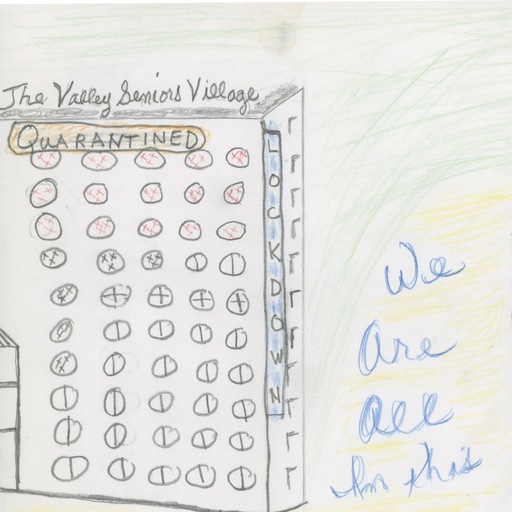 The Valley Seniors Village
QUARANTINED
LOCKDOWN
We
Are
All
In this